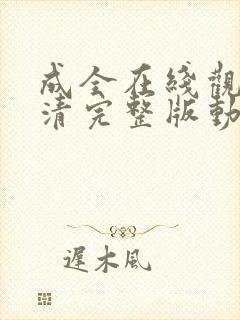 成全在綫觀
清完整版動
遲木風